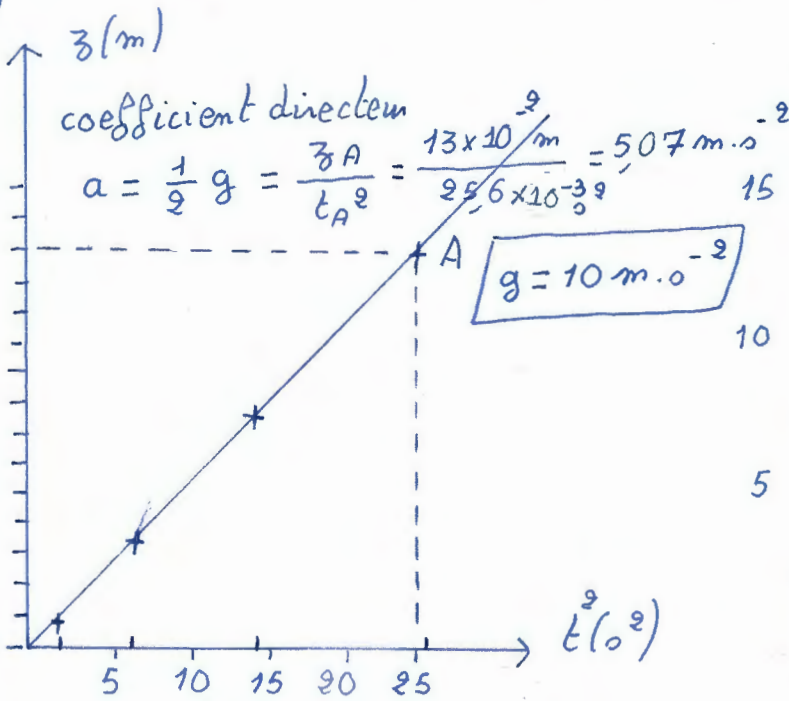 z(m)
coefficient directeur
a = 1/2 g = zA/tA² = 13×10⁻² m/25,6×10⁻³ s² = 5,07 m.s⁻²
15
A
g = 10 m.s⁻²
10
5
t²(s²)
5 10 15 20 25